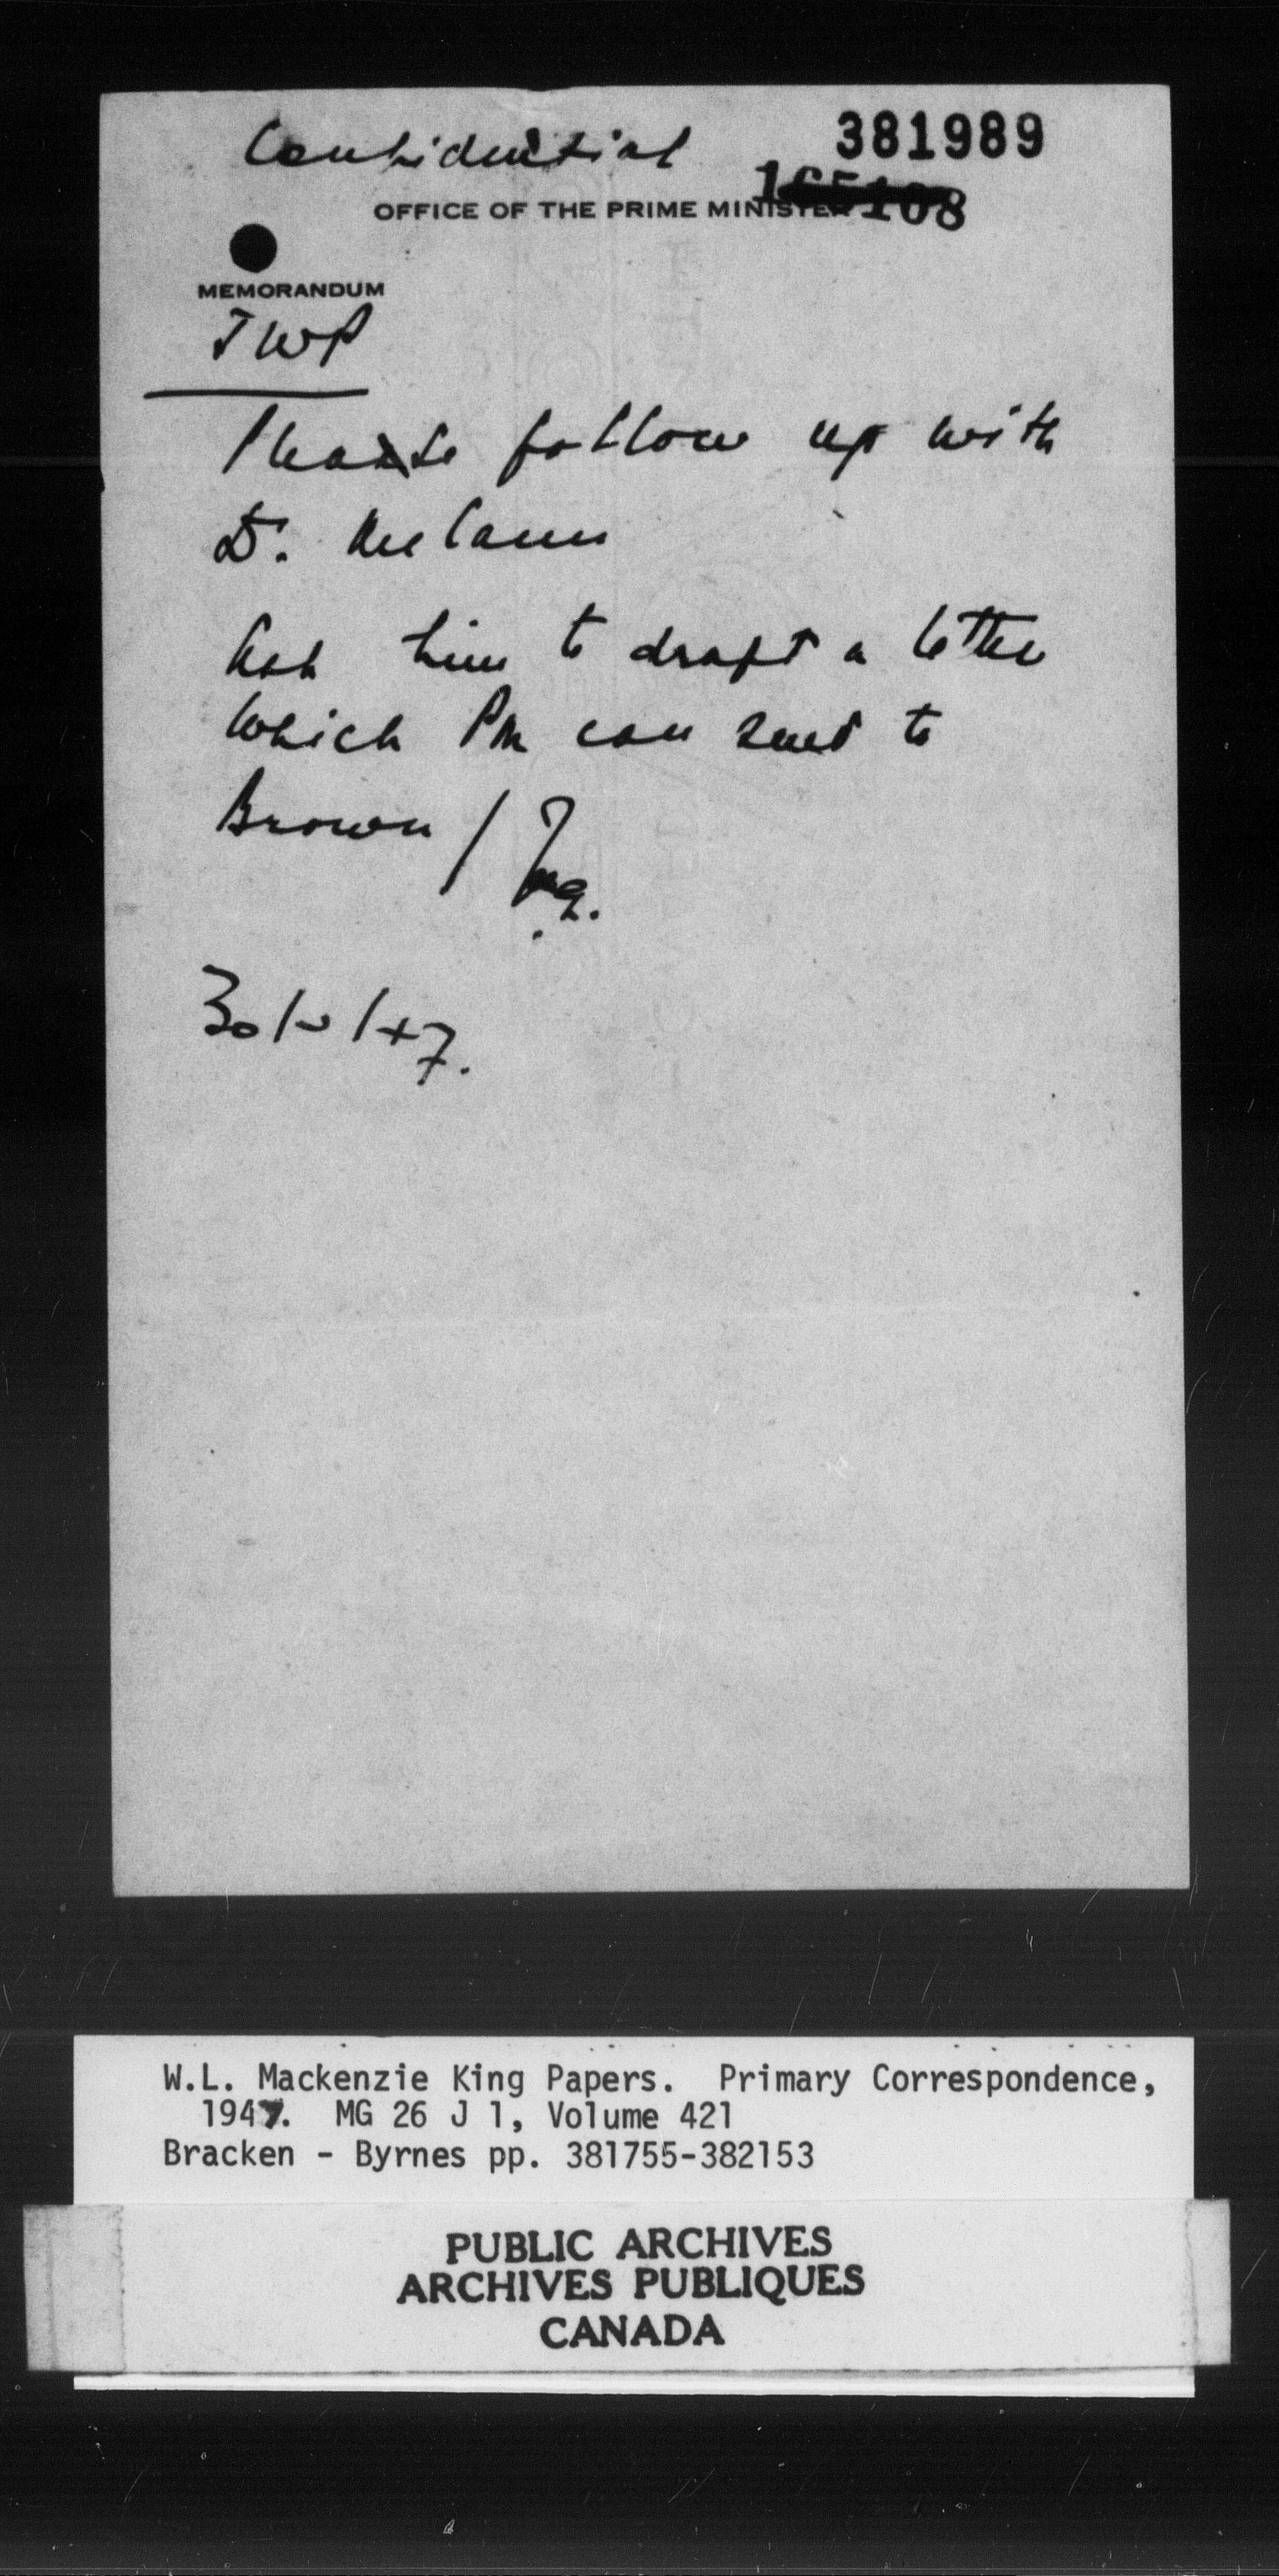 Confidential
381989
OFFICE OF THE PRIME MINISTER
MEMORANDUM
JWP
Please follow up with
Dr. McCann
Ask him to draft a letter
which PM can send to
Brown /
W.L. Mackenzie King Papers. Primary Correspondence,
1947. MG 26 J 1, Volume 421
Bracken - Byrnes pp. 381755-382153
PUBLIC ARCHIVES
ARCHIVES PUBLIQUES
CANADA